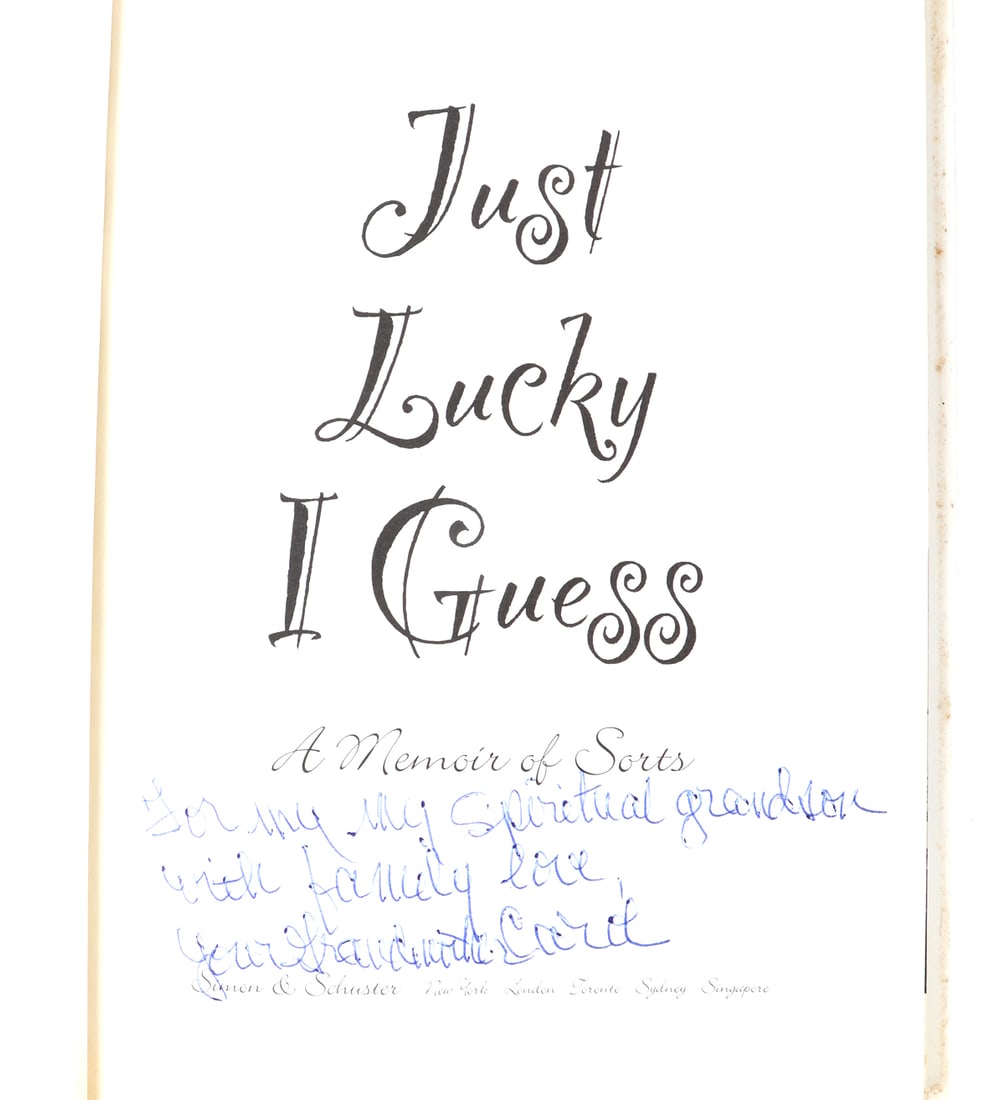 Just
Lucky
I Guess
A Memoir of Sorts
For my my spiritual grandson
with family love,
Your Grandmother Carol
Simon & Schuster New York London Toronto Sydney Singapore